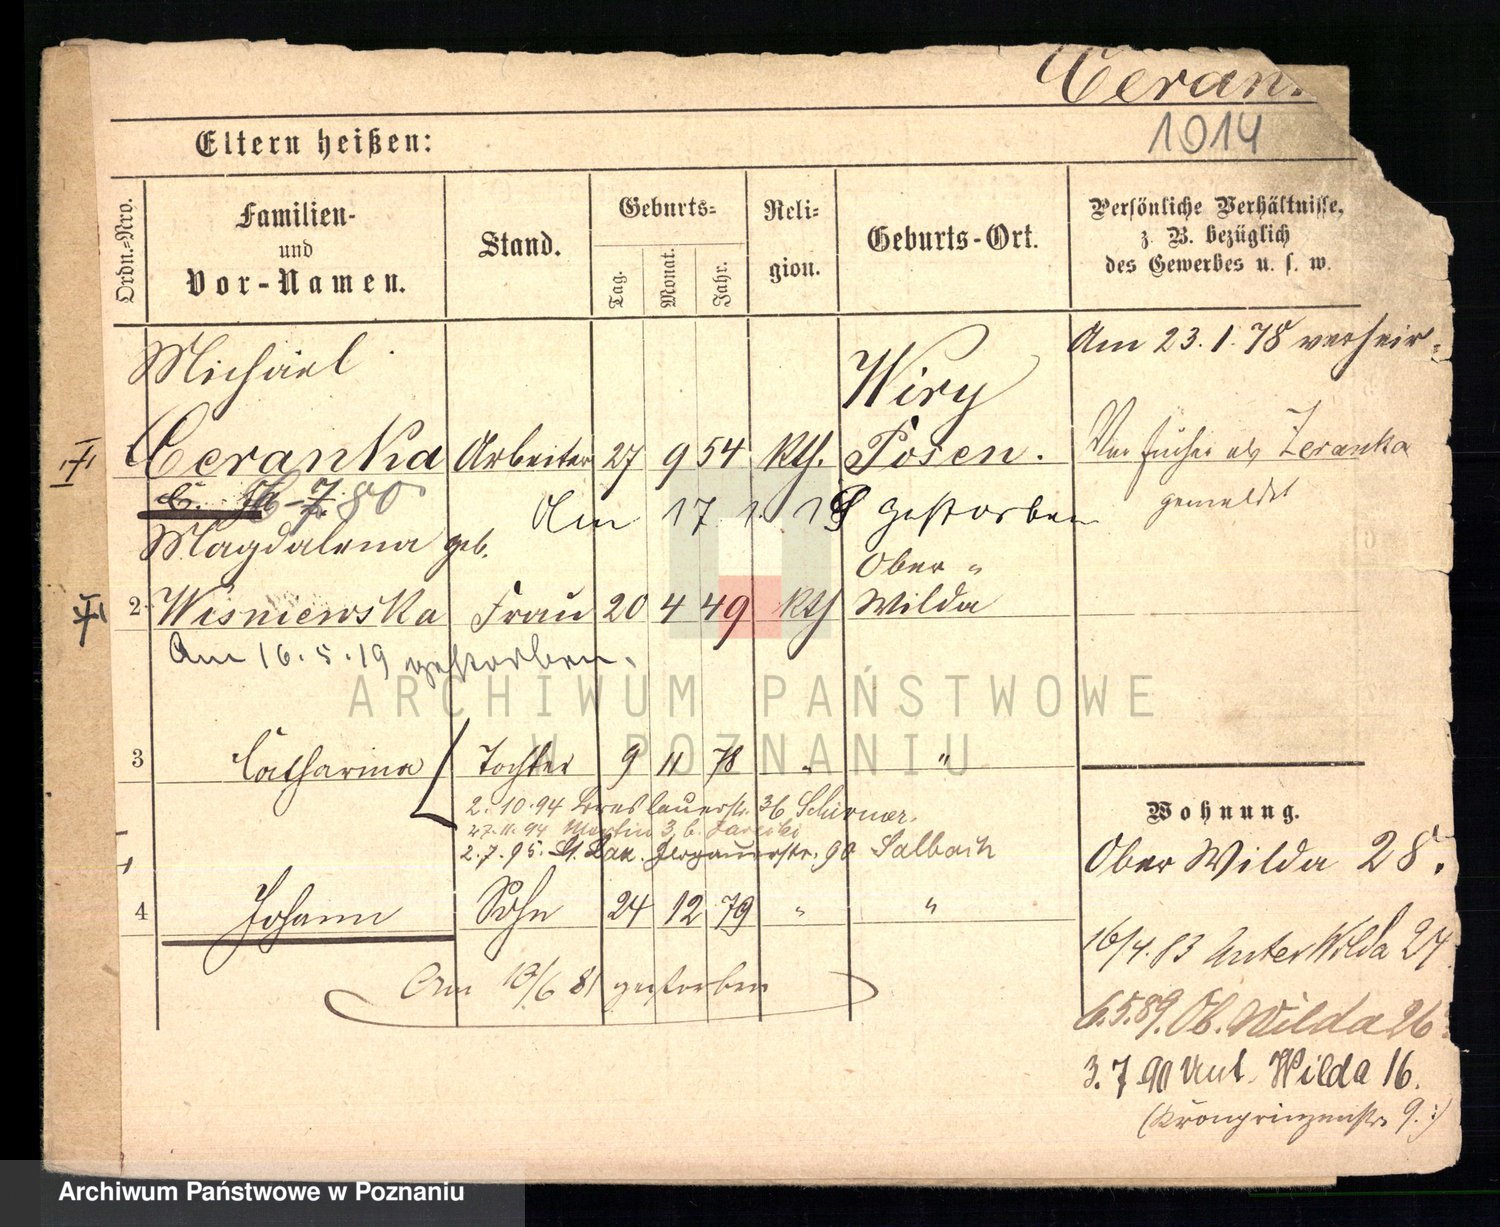 Ceran
1014
Eltern heißen:
Ordn.=Nro.
Familien-
und
Vor-Namen.
Stand.
Geburts=
Tag.
Monat.
Jahr.
Reli=
gion.
Geburts-Ort.
Persönliche Verhältnisse,
z. B. bezüglich
des Gewerbes u. s. w.
Michael
Wiry
Am 23.1.78 verheir
Ceranka Arbeiter 27 9 54 kth. Posen.
Zeranka
gemeldet
80
Am 17. 1. gestorben
Magdalena geb.
Ober "
2 Wisniewska Frau 20 4 49 kth Wilda
Am 16.5.19 gestorben.
ARCHIWUM PAŃSTWOWE
W POZNANIU
3 Catharina Tochter 9 11 78 " "
2.10.94 Breslauerstr. 36 Schirmer.
27.11.94 Martin 3, b.
2.7.95. 90 Salbach
4 Johann Sohn 24 12 79 " "
Am 13/6 81 gestorben
Wohnung.
Ober Wilda 28.
16/4.83 Unter Wilda 24
6.5.89. Ob. Wilda 26
3.7.90 Unt. Wilda 16.
(Kronprinzenstr. 9.)
Archiwum Państwowe w Poznaniu